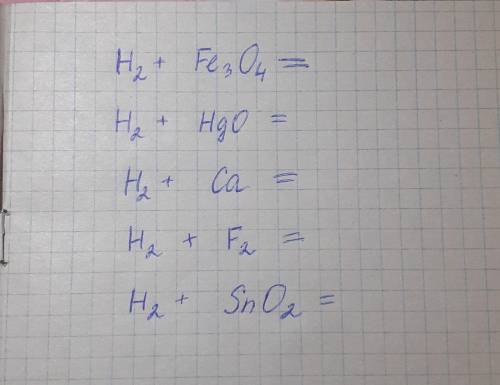 H₂ + Fe₃O₄ =
H₂ + HgO =
H₂ + Ca =
H₂ + F₂ =
H₂ + SnO₂ =